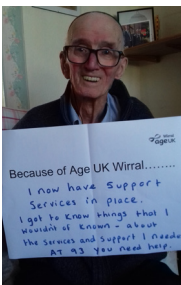 Wirral
age UK
Because of Age UK Wirral........
I now have Support
Services in place.
I got to know things that I
wouldnt of known - about
the services and support I needed
AT 93 you need help.